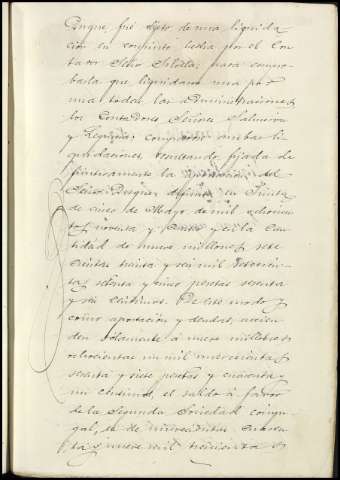 Duque, fué objeto de una liquida
ción en conjunto hecha por el Con
tador Señor Silela; para compro
barla que liquidaron una por
una todas las administraciones,
los Contadores Señores Salmerón
y Requena; comparadas ambas li
quidaciones, resultando fijada de
finitivamente la del
Señor Duque, difunto, en Junta
de cinco de Mayo de mil ochocien
tos noventa y cinco y en la can
tidad de nueve millones sete
cientas treinta y seis mil
tas setenta y cinco pesetas sesenta
y seis céntimos. De este modo y
como aportación y deudas, ascien
den solamente á nueve millones
ochocientas un mil novecientas
sesenta y siete pesetas y cuarenta y
un céntimos, el saldo á favor
de la segunda Sociedad conyu
gal, es de novecientas cuaren
ta y nueve mil trescientas